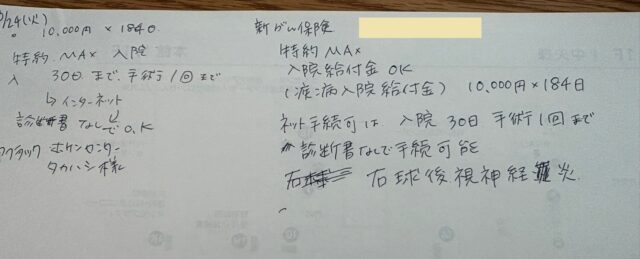 /24(火)
10,000円×184日
特約 MAX 入院
30日まで、手術1回まで
↳インターネット
診断書なしでO.K
アフラック ホケンセンター
タカハシ様
新がん保険
特約MAX
入院給付金OK
(疾病入院給付金) 10,000円×184日
ネット手続可は 入院30日 手術1回まで
診断書なしで手続可能
右 右球後視神経炎